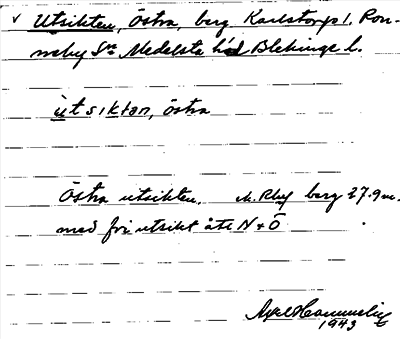 v Utsikten, Östra, berg Karlstorp 1, Ron-
neby Sn Medelsta hd Blekinge l.
ùtsiktan, östra
Östra utsikten. berg 27.9 m.
med fri utsikt åt N + Ö
Axel
1943